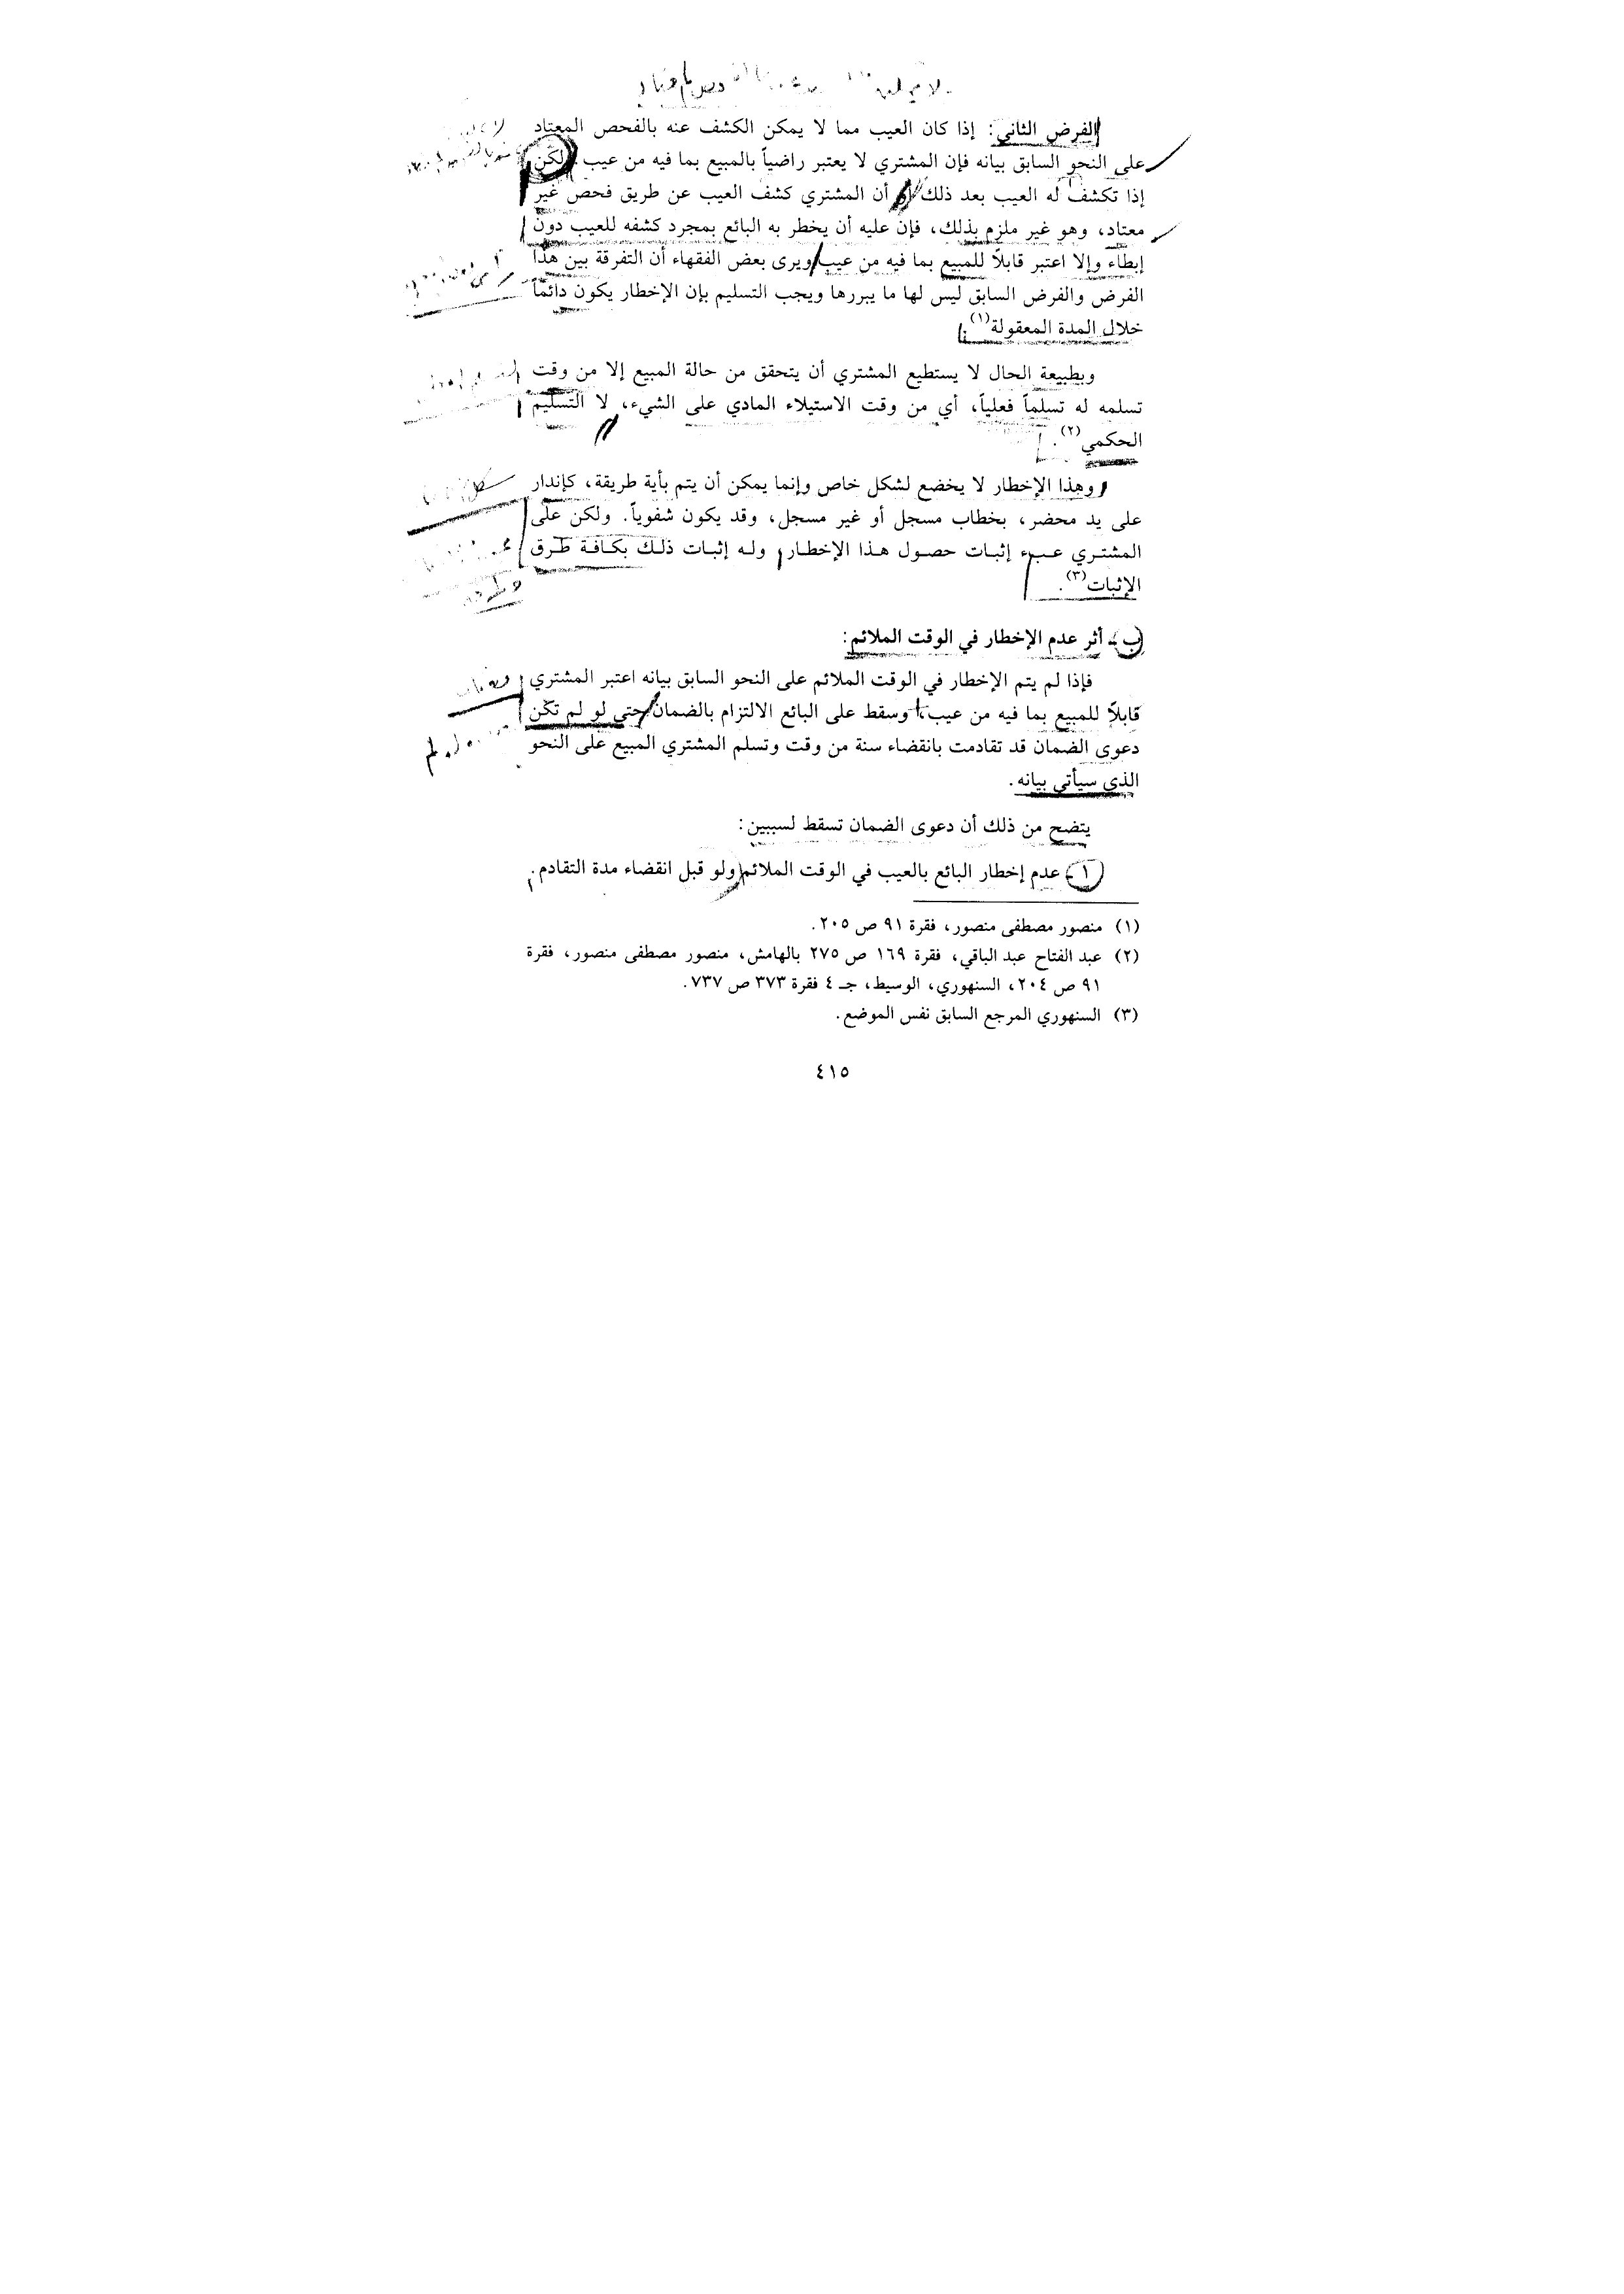 الفرض الثاني: إذا كان العيب مما لا يمكن الكشف عنه بالفحص المعتاد
على النحو السابق بيانه فإن المشتري لا يعتبر راضياً بالمبيع بما فيه من عيب. ولكن
إذا تكشف له العيب بعد ذلك أو أن المشتري كشف العيب عن طريق فحص غير
معتاد، وهو غير ملزم بذلك، فإن عليه أن يخطر به البائع بمجرد كشفه للعيب دون
إبطاء وإلا اعتبر قابلاً للمبيع بما فيه من عيب ويرى بعض الفقهاء أن التفرقة بين هذا
الفرض والفرض السابق ليس لها ما يبررها ويجب التسليم بإن الإخطار يكون دائماً
خلال المدة المعقولة(١).
وبطبيعة الحال لا يستطيع المشتري أن يتحقق من حالة المبيع إلا من وقت
تسلمه له تسلماً فعلياً، أي من وقت الاستيلاء المادي على الشيء، لا التسليم
الحكمي(٢).
وهذا الإخطار لا يخضع لشكل خاص وإنما يمكن أن يتم بأية طريقة، كإندار
على يد محضر، بخطاب مسجل أو غير مسجل، وقد يكون شفوياً. ولكن على
المشتري عبء إثبات حصول هذا الإخطار وله إثبات ذلك بكافة طرق
الإثبات(٣).
ب - أثر عدم الإخطار في الوقت الملائم:
فإذا لم يتم الإخطار في الوقت الملائم على النحو السابق بيانه اعتبر المشتري
قابلاً للمبيع بما فيه من عيب، وسقط على البائع الالتزام بالضمان حتى لو لم تكن
دعوى الضمان قد تقادمت بانقضاء سنة من وقت وتسلم المشتري المبيع على النحو
الذي سيأتي بيانه.
يتضح من ذلك أن دعوى الضمان تسقط لسببين:
١ - عدم إخطار البائع بالعيب في الوقت الملائم ولو قبل انقضاء مدة التقادم.
(١) منصور مصطفى منصور، فقرة ٩١ ص ٢٠٥.
(٢) عبد الفتاح عبد الباقي، فقرة ١٦٩ ص ٢٧٥ بالهامش، منصور مصطفى منصور، فقرة
٩١ ص ٢٠٤، السنهوري، الوسيط، جـ ٤ فقرة ٣٧٣ ص ٧٣٧.
(٣) السنهوري المرجع السابق نفس الموضع.
٤١٥